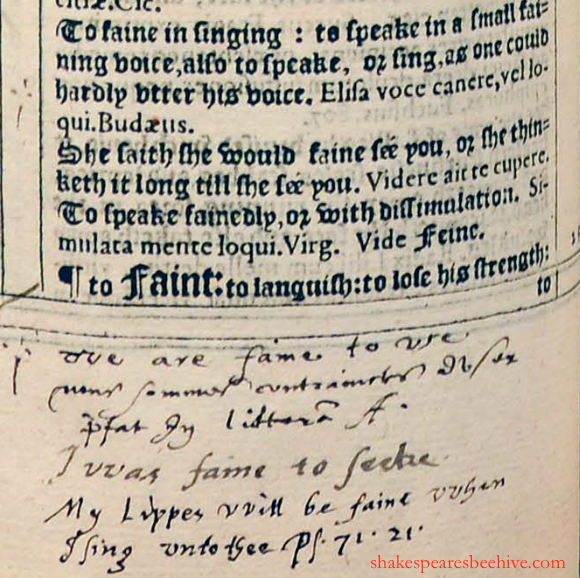 citiæ.Cic.
To faine in singing : to speake in a small fai-
ning voice, also to speake, or sing, as one could
hardly vtter his voice. Elisa voce canere, vel lo-
qui. Budæus.
She saith she would faine seé you, or she thin-
keth it long till she seé you. Videre ait te cupere.
To speake fainedly, or with dissimulation. Si-
mulata mente loqui. Virg. Vide Feine.
¶ to Faint: to languish: to lose his strength:
to
we are faine to use
nous sommes contrainctes d'user
In littera A.
I was faine to seeke
My Lippes will be faine when
I sing unto thee Ps. 71. 21.
shakespearesbeehive.com